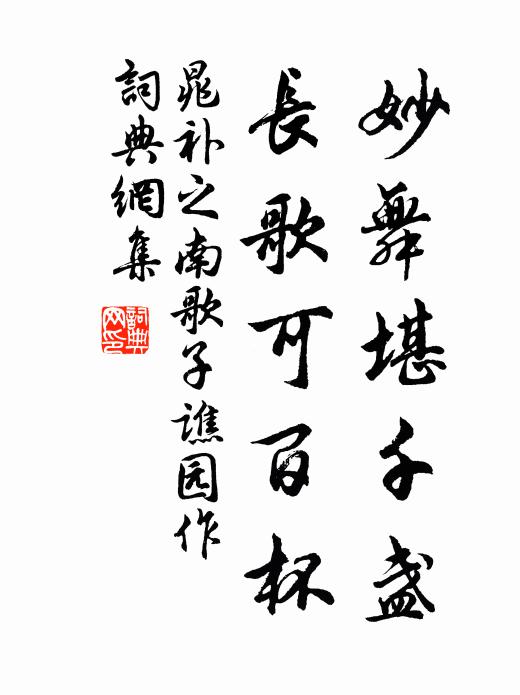 妙舞堪千盏
長歌可百杯
晁补之南歌子譙园作
詞典網集
詞典网印